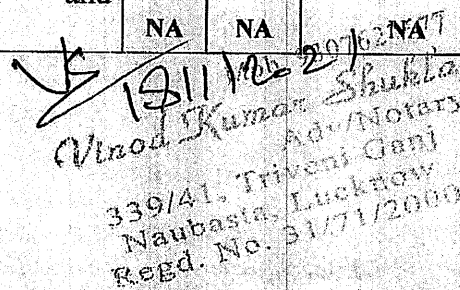 and
NA NA NA
Vinod Kumar Shukla
Adv/Notary
339/41, Triveni Ganj
Naubasta, Lucknow
Regd. No. 31/71/2000